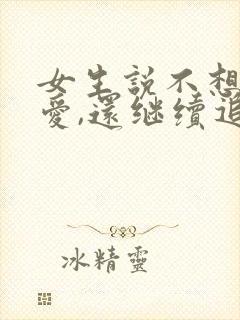 女生説不想
愛,還继续追
冰精靈